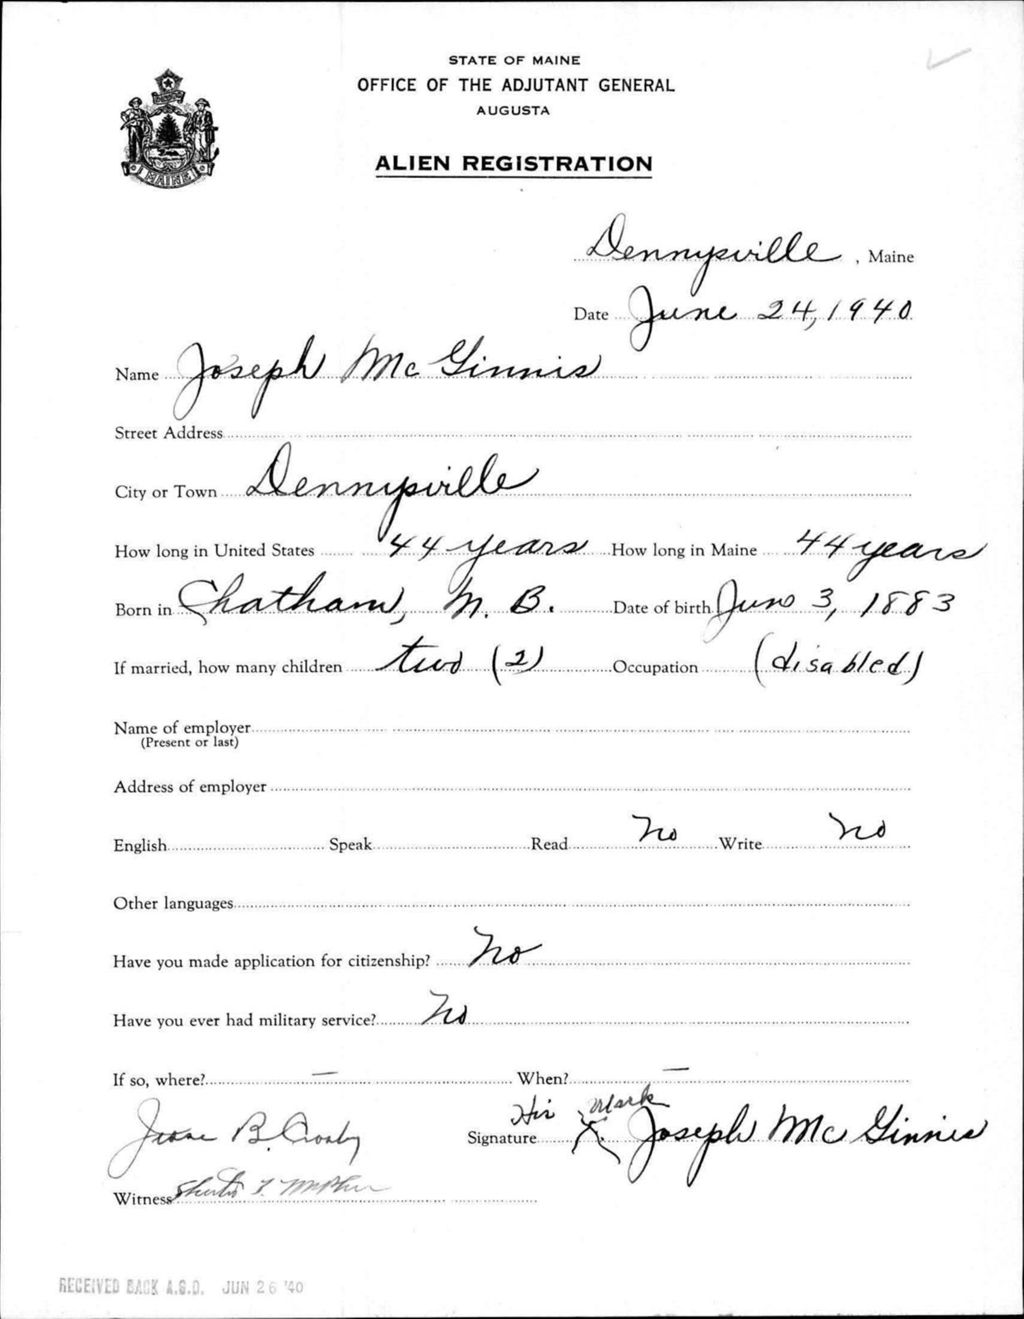 STATE OF MAINE
OFFICE OF THE ADJUTANT GENERAL
AUGUSTA
ALIEN REGISTRATION
MAINE
Dennysville, Maine
Date June 24, 1940
Name Joseph McGinnis
Street Address
City or Town Dennysville
How long in United States 44 years How long in Maine 44 years
Born in Chatham, N. B. Date of birth June 3, 1883
If married, how many children two (2) Occupation (disabled)
Name of employer
(Present or last)
Address of employer
English Speak Read No Write No
Other languages
Have you made application for citizenship? No
Have you ever had military service? No
If so, where? — When? —
His X Mark
Signature Joseph McGinnis
B. Crosby
Witness
RECEIVED BACK A.G.O. JUN 26 '40